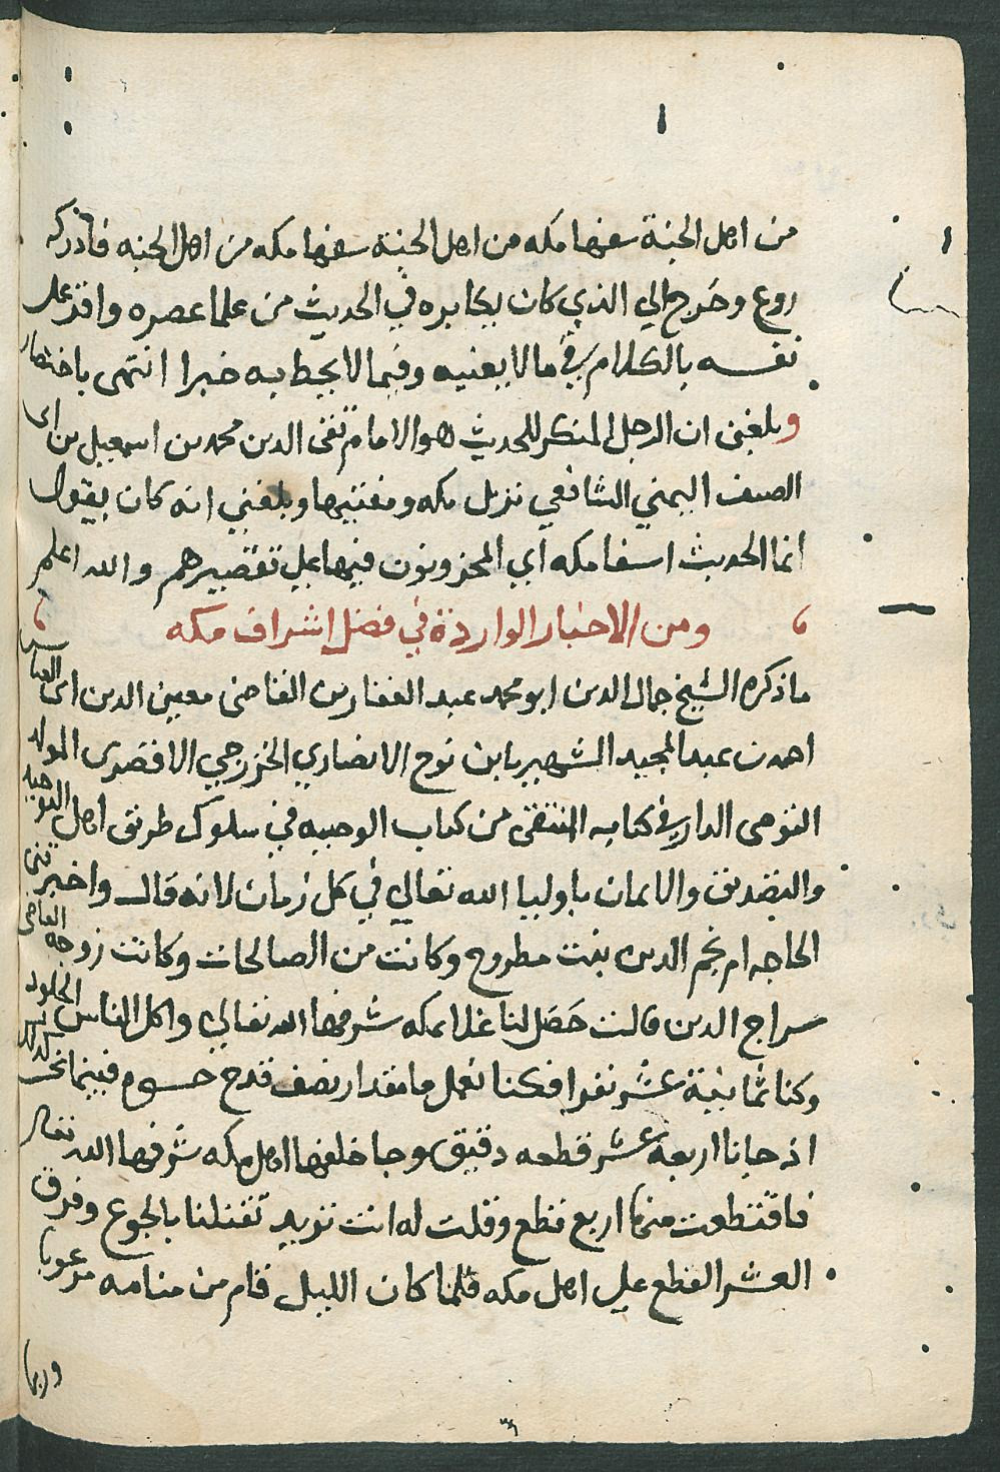 من اهل الجنة سفها مكه من اهل الجنة سفها مكه من اهل الجنه فادركه
روع وخرج الي الذي كان يكابره في الحديث من علما عصره واقر على
نفسه بالكلام في ما لا يعنيه وفيما لا يحيط به خبرا انتهى باختصار
وبلغني ان الرجل المنكر للحديث هو الامام تقى الدين محمد بن اسمعيل بن ابى
الصيف اليمني الشافعي نزيل مكه ومفتيها وبلغني انه كان يقول
انما الحديث اسفا مكه اي المحزونون فيها على تقصيرهم والله اعلم
ومن الاخبار الواردة في فضل اشراف مكه
ما ذكره الشيخ جمال الدين ابو محمد عبد الغفار بن القاضى معين الدين ابى العباس
احمد بن عبد المجيد الشهير بابن نوح الانصاري الخزرجي الاقصرى المولد
القوصى الدار في كتابه المنتقى من كتاب الوحيد في سلوك طريق اهل التوحيد
والتصديق والايمان باوليا الله تعالي في كل زمان لانه قال واخبرتنى
الحاجه ام نجم الدين بنت مطروح وكانت من الصالحات وكانت زوجه القاضى
سراج الدين قالت حصل لنا غلا بمكه شرفها الله تعالي واكل الناس الجلود
وكنا ثمانية عشر نفرا فكنا نعمل ما مقدار نصف قدح حسوم فبينما نحن كذلك
اذ جانا اربعة عشر قطعه دقيق وجا خلفها اهل مكه شرفها الله تعالى
فاقتطعت منها اربع قطع وقلت له انت تريد تقتلنا بالجوع وفرق
العشر القطع علي اهل مكه فلما كان الليل قام من منامه مرعوبا